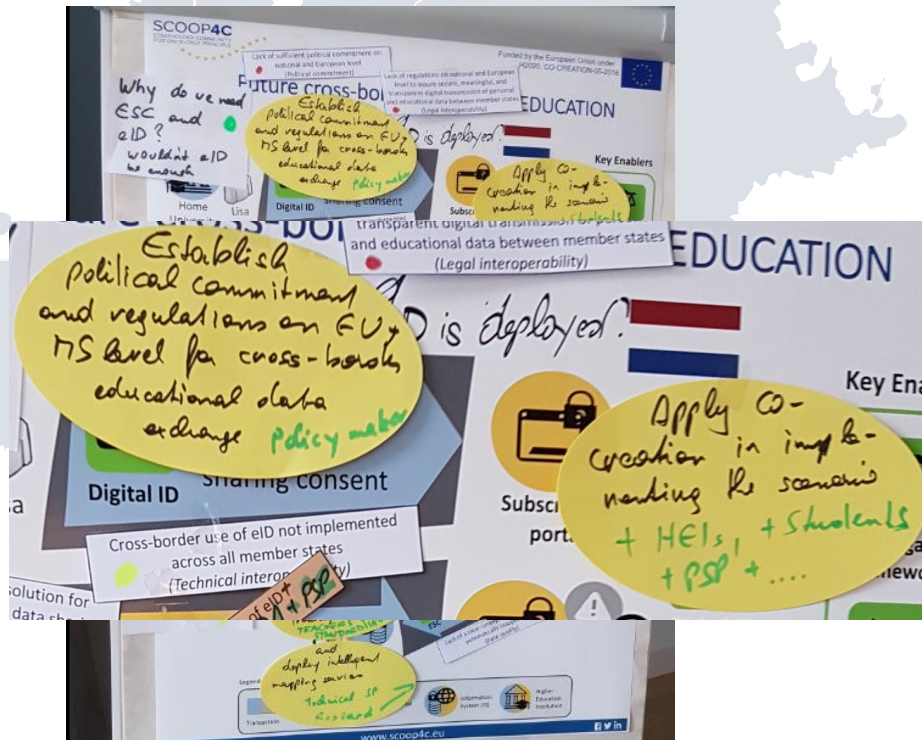 SCOOP4C
STAKEHOLDER COMMUNITY
FOR ONCE-ONLY PRINCIPLE
Lack of sufficient political commitment on
national and European level
(Political commitment)
Funded by the European Union under
H2020, CO-CREATION-05-2016
Lack of regulations on national and European
level to assure secure, meaningful, and
transparent digital transmission of personal
and educational data between member states
(Legal interoperability)
Future cross-bo
EDUCATION
Why do we need
ESC and
eID?
wouldn't eID
be enough
Establish
political commitment
and regulations on EU+
MS level for cross-border
educational data
exchange policy maker
D is deployed?
Key Enablers
Apply co-
creation in imple-
menting the scenario
+ Students
Home
Lisa
Digital ID
sharing consent
Subsc
transparent digital
and educational data between member states
(Legal interoperability)
EDUCATION
Establish
political commitment
and regulations on EU+
MS level for cross-border
educational data
exchange policy maker
D is deployed?
Key Ena
Apply co-
creation in imple-
menting the scenario
+ HEIs, + Students
+ PSP + ....
Digital ID
sharing consent
Subsc
port
Cross-border use of eID not implemented
across all member states
(Technical interop ty)
solution for
data sh
of eID+
+ PSP
TEACHERS
and
deploy intelligent
mapping services
Technical SP
Legend
Transaction
Information
System (IS)
Higher
Education
Institution
www.scoop4c.eu